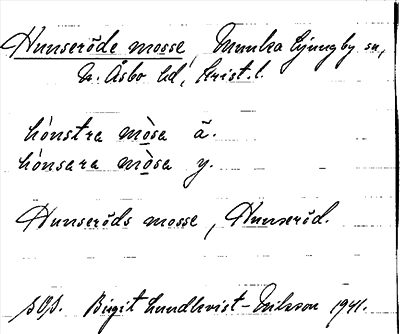 Hunseröde mosse, Munka Ljungby sn,
N. Åsbo hd, Krist. l.
hónstra mòsa ä.
hónsara mòsa y.
Hunseröds mosse, Hunseröd.
Birgit Lundkvist-Nilsson 1941.